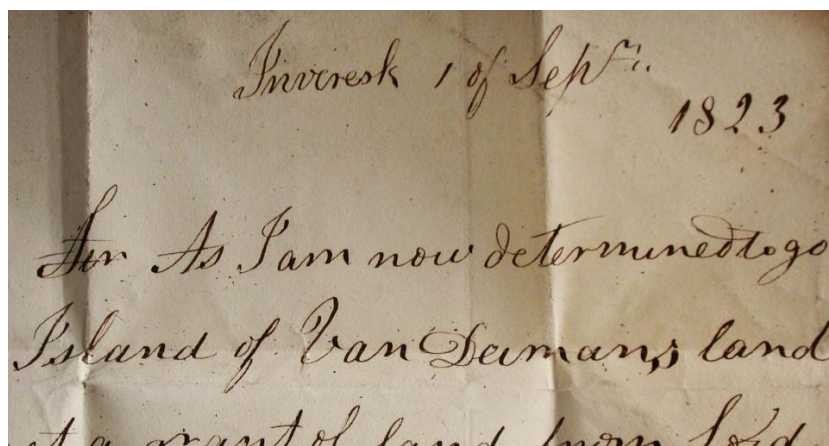 Inveresk 1 of Sepr.
1823
Sir As I am now determined to go
Island of Van Deimans land
t a grant of land from Lord